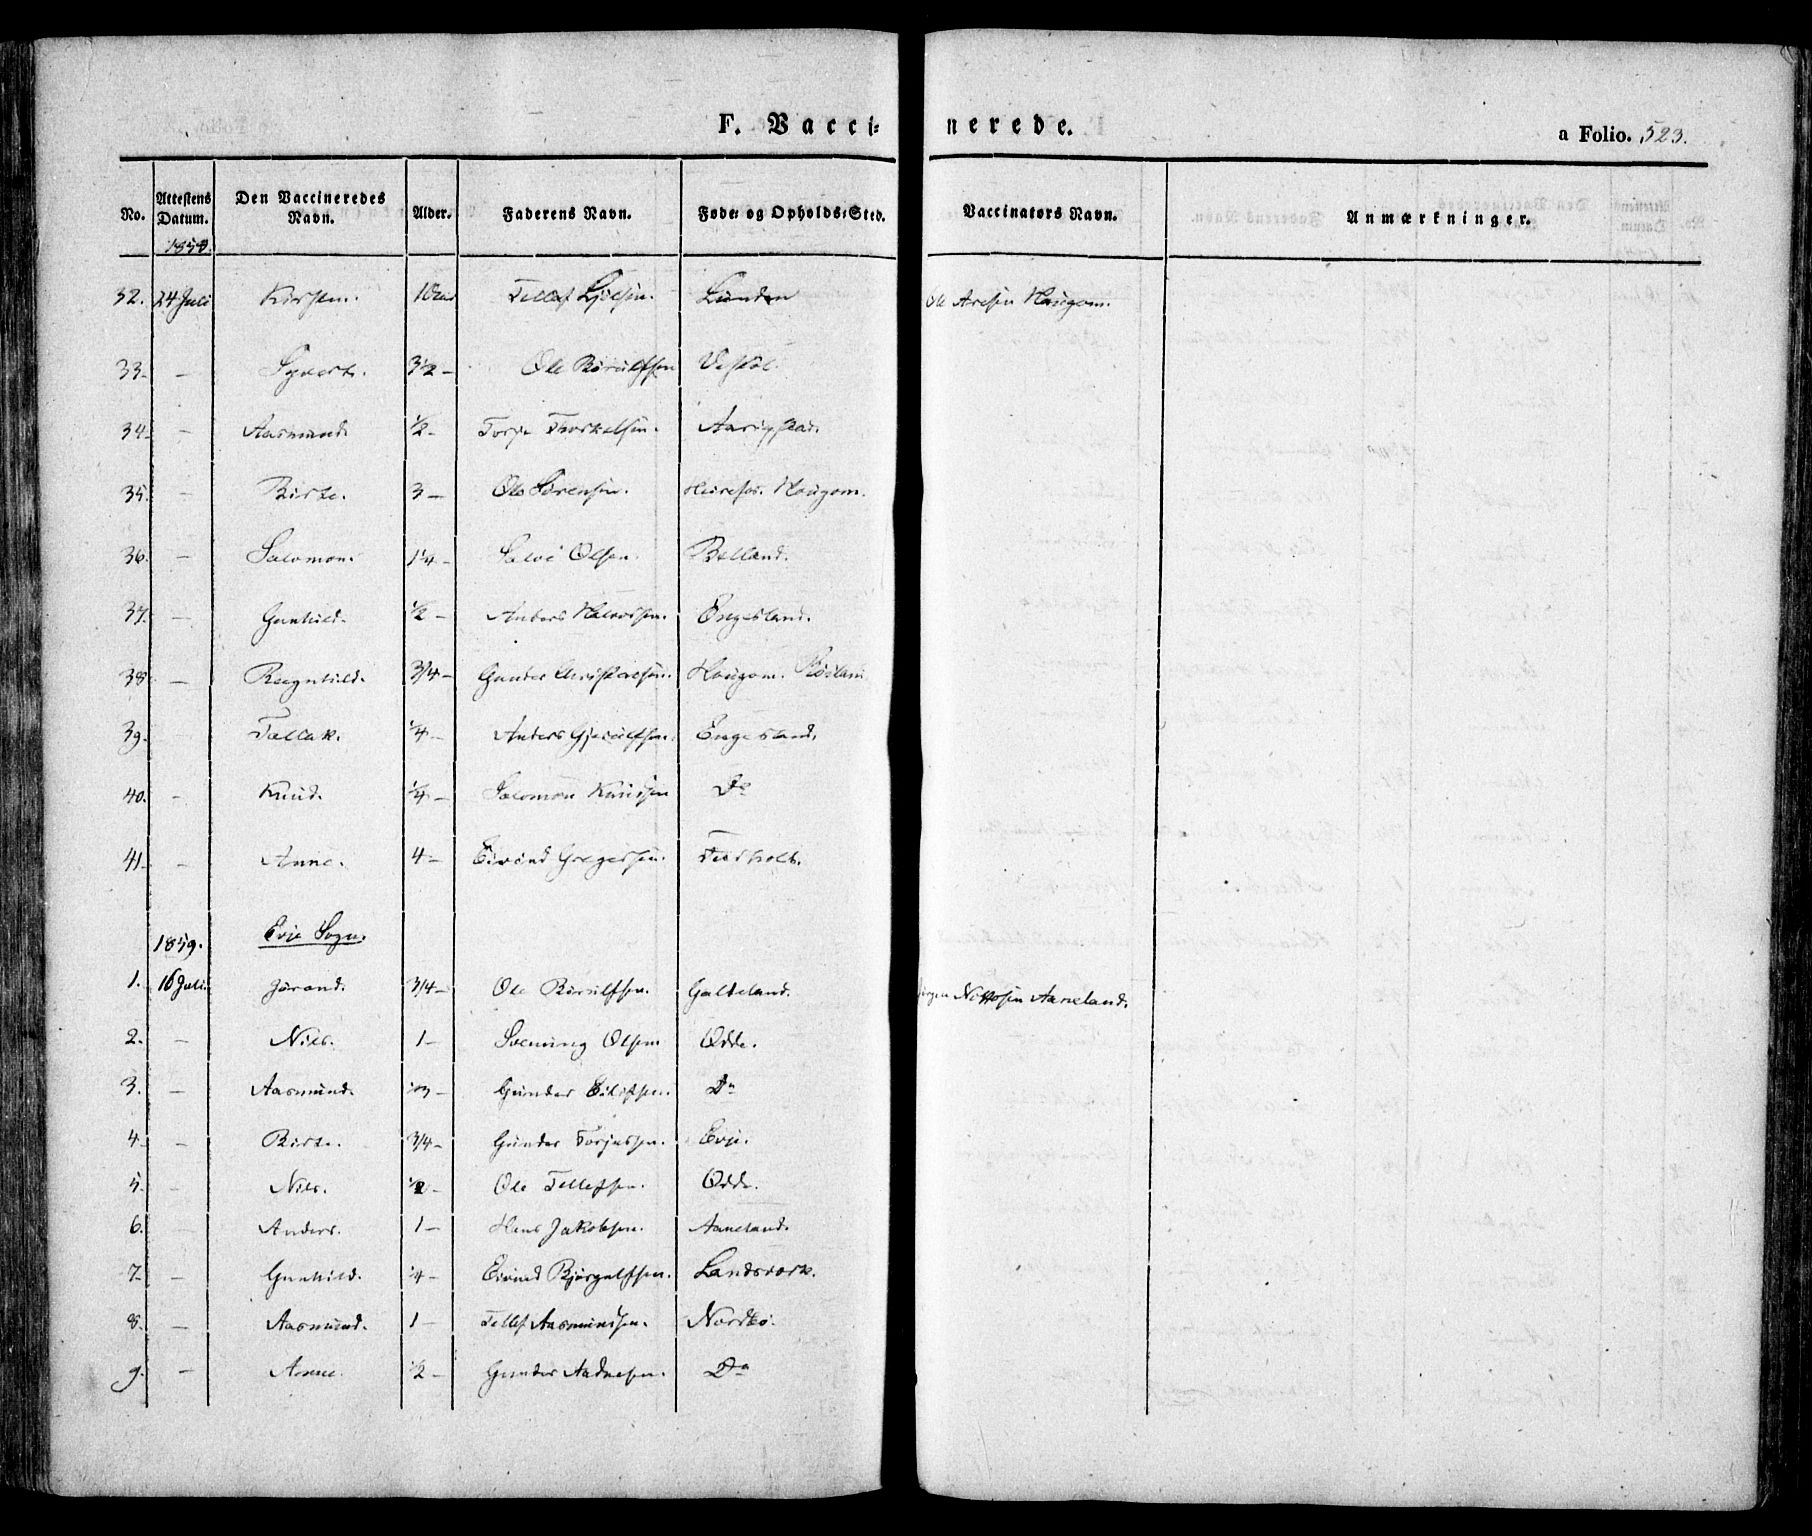 F. Vacci-nerede.
a Folio. 523.
No. Attestens Datum. Den Vaccineredes Navn. Alder. Faderens Navn. Føde- og Opholds-Sted. Vaccinators Navn. Anmærkninger.
1858.
32. 24 Juli Kirsten. Tellef Lunden Ole Aresen Hougom.
33. — Syvert. 3½ — Ole Börulfsen
34. — Aasmund. ½ — Torje Thorkelsen.
35. — Birte. 3 — Ole Sörensen. Hougom.
36. — Salomon. 1¼ — Salve Olsen. Belland.
37. — Gunhild. ½ — Anders Halvorsen. Engesland.
38. — Ragnhild. 3/4 — Gunder Christensen. Hougom.
39. Tallak. ¼ — Anders Engesland.
40. — Knud. ¼ — Salomon Knudsen Do
41. — Anne. 4 — Eivind Gregersen.
1859. Evje Sogn.
1. 16 Juli. Jörand. 3/4 — Ole Börulfsen. Galteland. Jörgen Aaneland.
2. — Nils. 1 — Svenung Olsen Odde.
3. — Aasmund. Gunder Eilifsen. Do
4. — Birte. 3/4 — Gunder Torjussen. Evje.
5. — Nils. ½ — Ole Tellefsen. Odde.
6. — Anders. 1 — Hans Jakobsen. Aaneland.
7. — Gunhild. ¼ — Eivind Bjørgulfsen. Landsverk.
8. — Aasmund. 1 — Tellef Aasmundsen. Nordbö.
9. — Anne. ½ — Gunder Aadnesen. Do